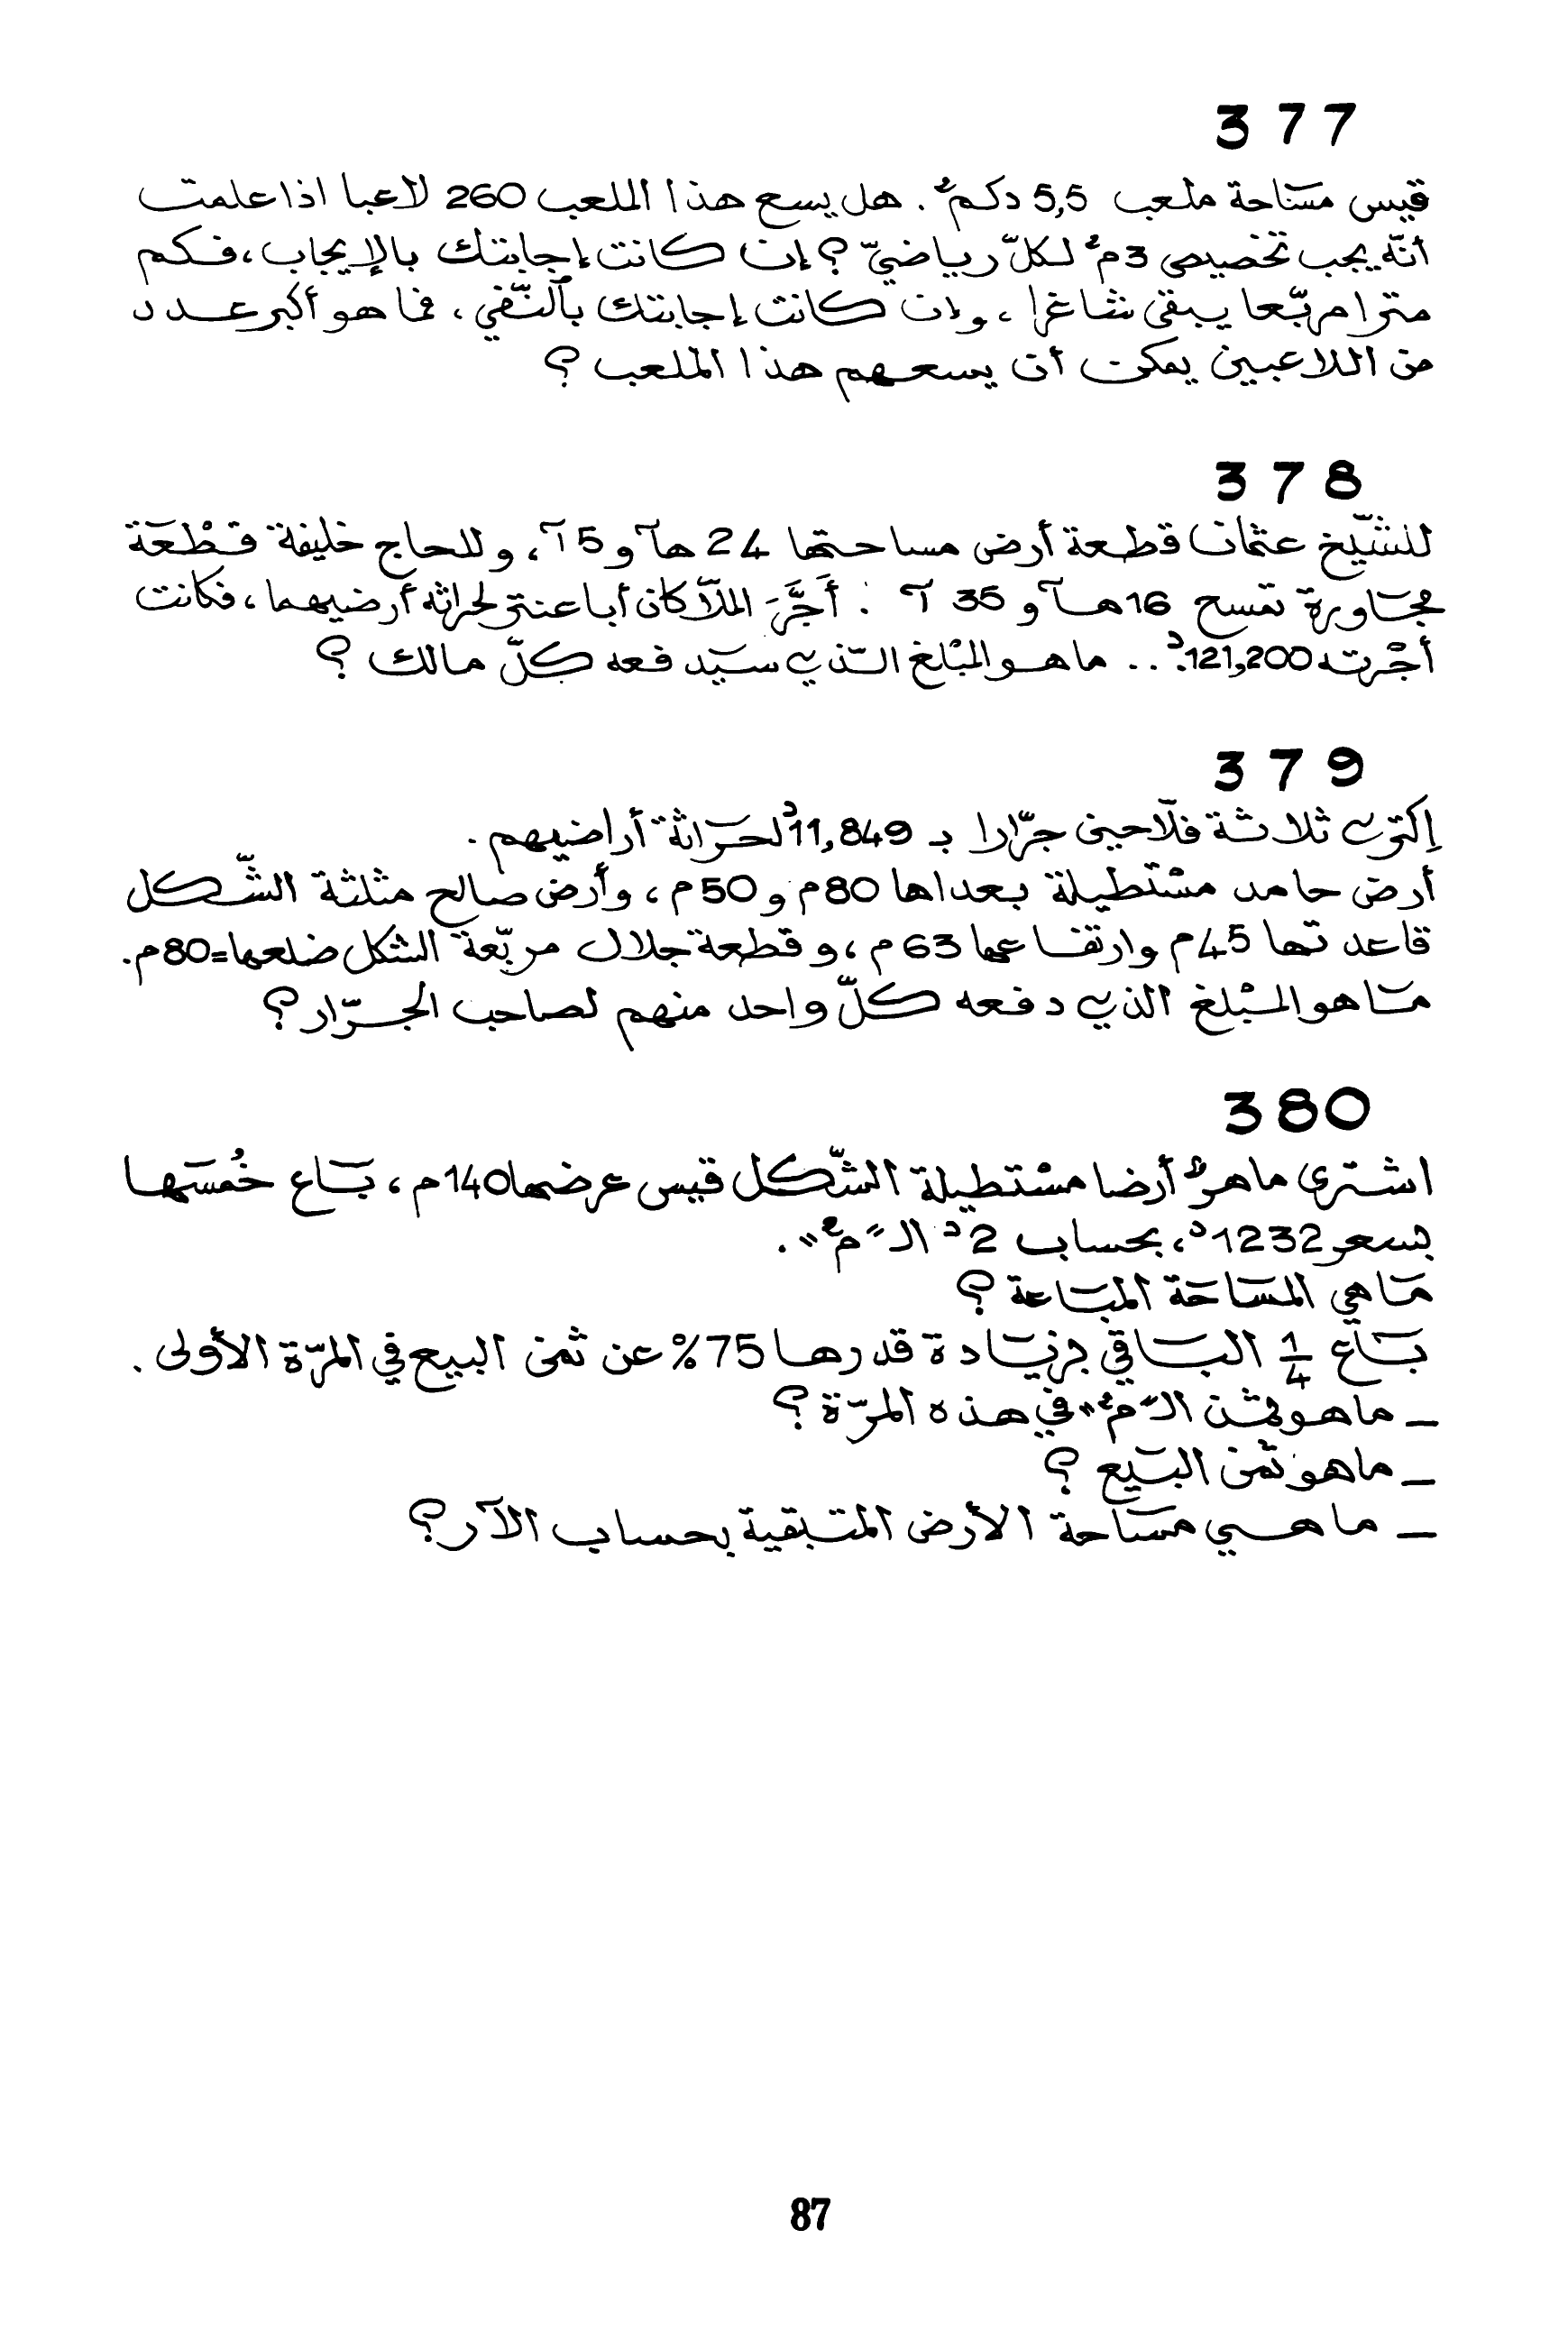 377
قيس مسَاحة ملعب 5,5 دكم². هل يسع هذا الملعب 260 لاعبا اذا علمت
أنّه يجب تخصيص 3م² لكلّ رياضيّ ؟ إن كانت إجابتك بالإيجاب، فكم
مترا مربّعا يبقى شاغرا، وإن كانت إجابتك بالنّفي، فما هو أكبر عدد
من اللاعبين يمكن أن يسعهم هذا الملعب ؟
378
للشّيخ عثمان قطعة أرض مساحتها 24 هآ و 5 آ، وللحاج خليفة قطْعَة
مجَاورة تمسح 16 هآ و 35 آ . أَجَّرَ الملاّكان أبا عنتر لحراثة أرضيهما، فكانت
أجْرته 121,200د. .. ما هو المبْلغ الّذي سيَدفعه كلّ مالك ؟
379
إكترى ثلاثة فلّاحين جرّارا بـ 11,849د لحرَاثة أراضيهم .
أرض حامد مسْتطيلة بعداها 80م و 50م، وأرض صالح مثلثة الشّكل
قاعدتها 45م وارتفاعها 63 م، وقطعة جلال مربّعة الشكل ضلعها=80م.
مَا هو المبْلغ الذي دفعه كلّ واحد منهم لصاحب الجرّار ؟
380
اشترى ماهرٌ أرضا مسْتطيلة الشّكل قيس عرضها 140م، بَاع خُمسَها
بسعر 1232د، بحساب 2د الـ "م²" .
مَا هي المسَاحَة المبَاعة ؟
بَاع 1/4 البَاقي بزيَادة قدرها 75% عن ثمن البيع في المرّة الأولى .
ـ ما هو ثمن الـ "م²" في هذه المرّة ؟
ـ ما هو ثمن البَيع ؟
ـ ما هي مسَاحة الأرض المتبَقية بحساب الآر ؟
87